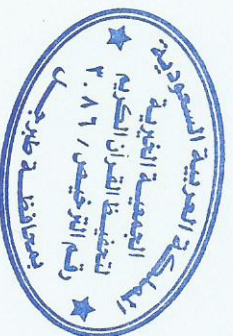 المملكة العربية السعودية
الجمعية الخيرية
لتحفيظ القرآن الكريم
رقم الترخيص / ٣٠٨٦
بمحافظة طبرجل